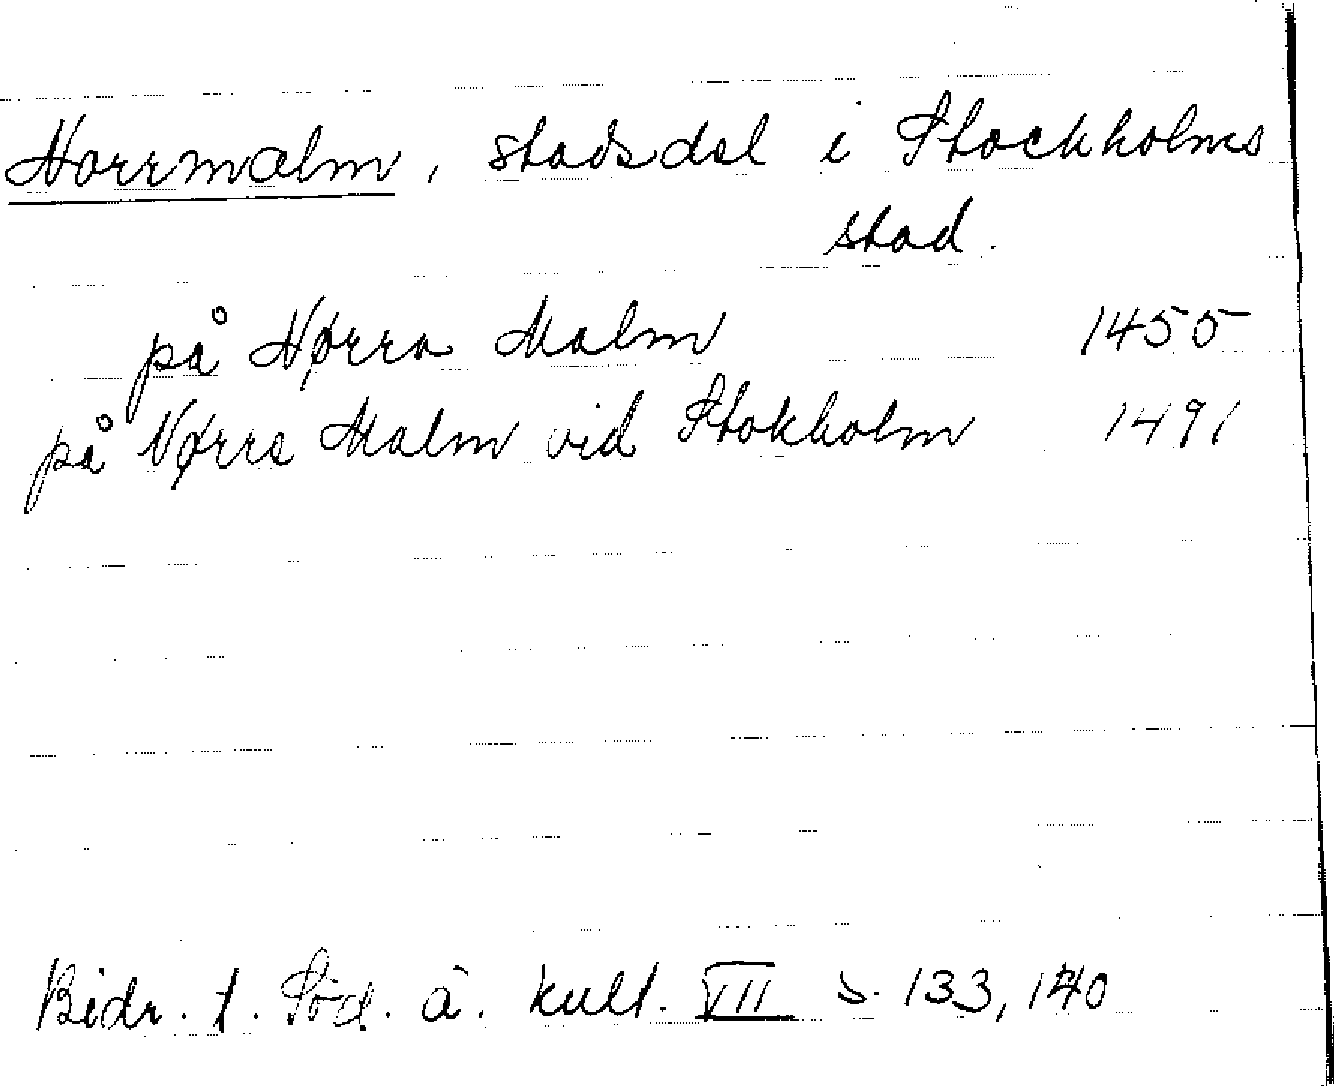 Norrmalm, stadsdel i Stockholms
stad.
på Nørra Malm 1455
på Nørra Malm vid Stokholm 1491
Bidr. t. Söd. ä. kult. VII s. 133, 140